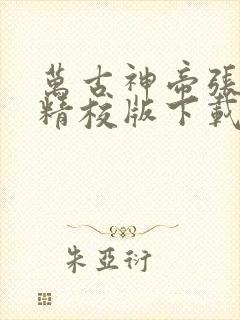 萬古神帝張
精校版下載
朱亞衍